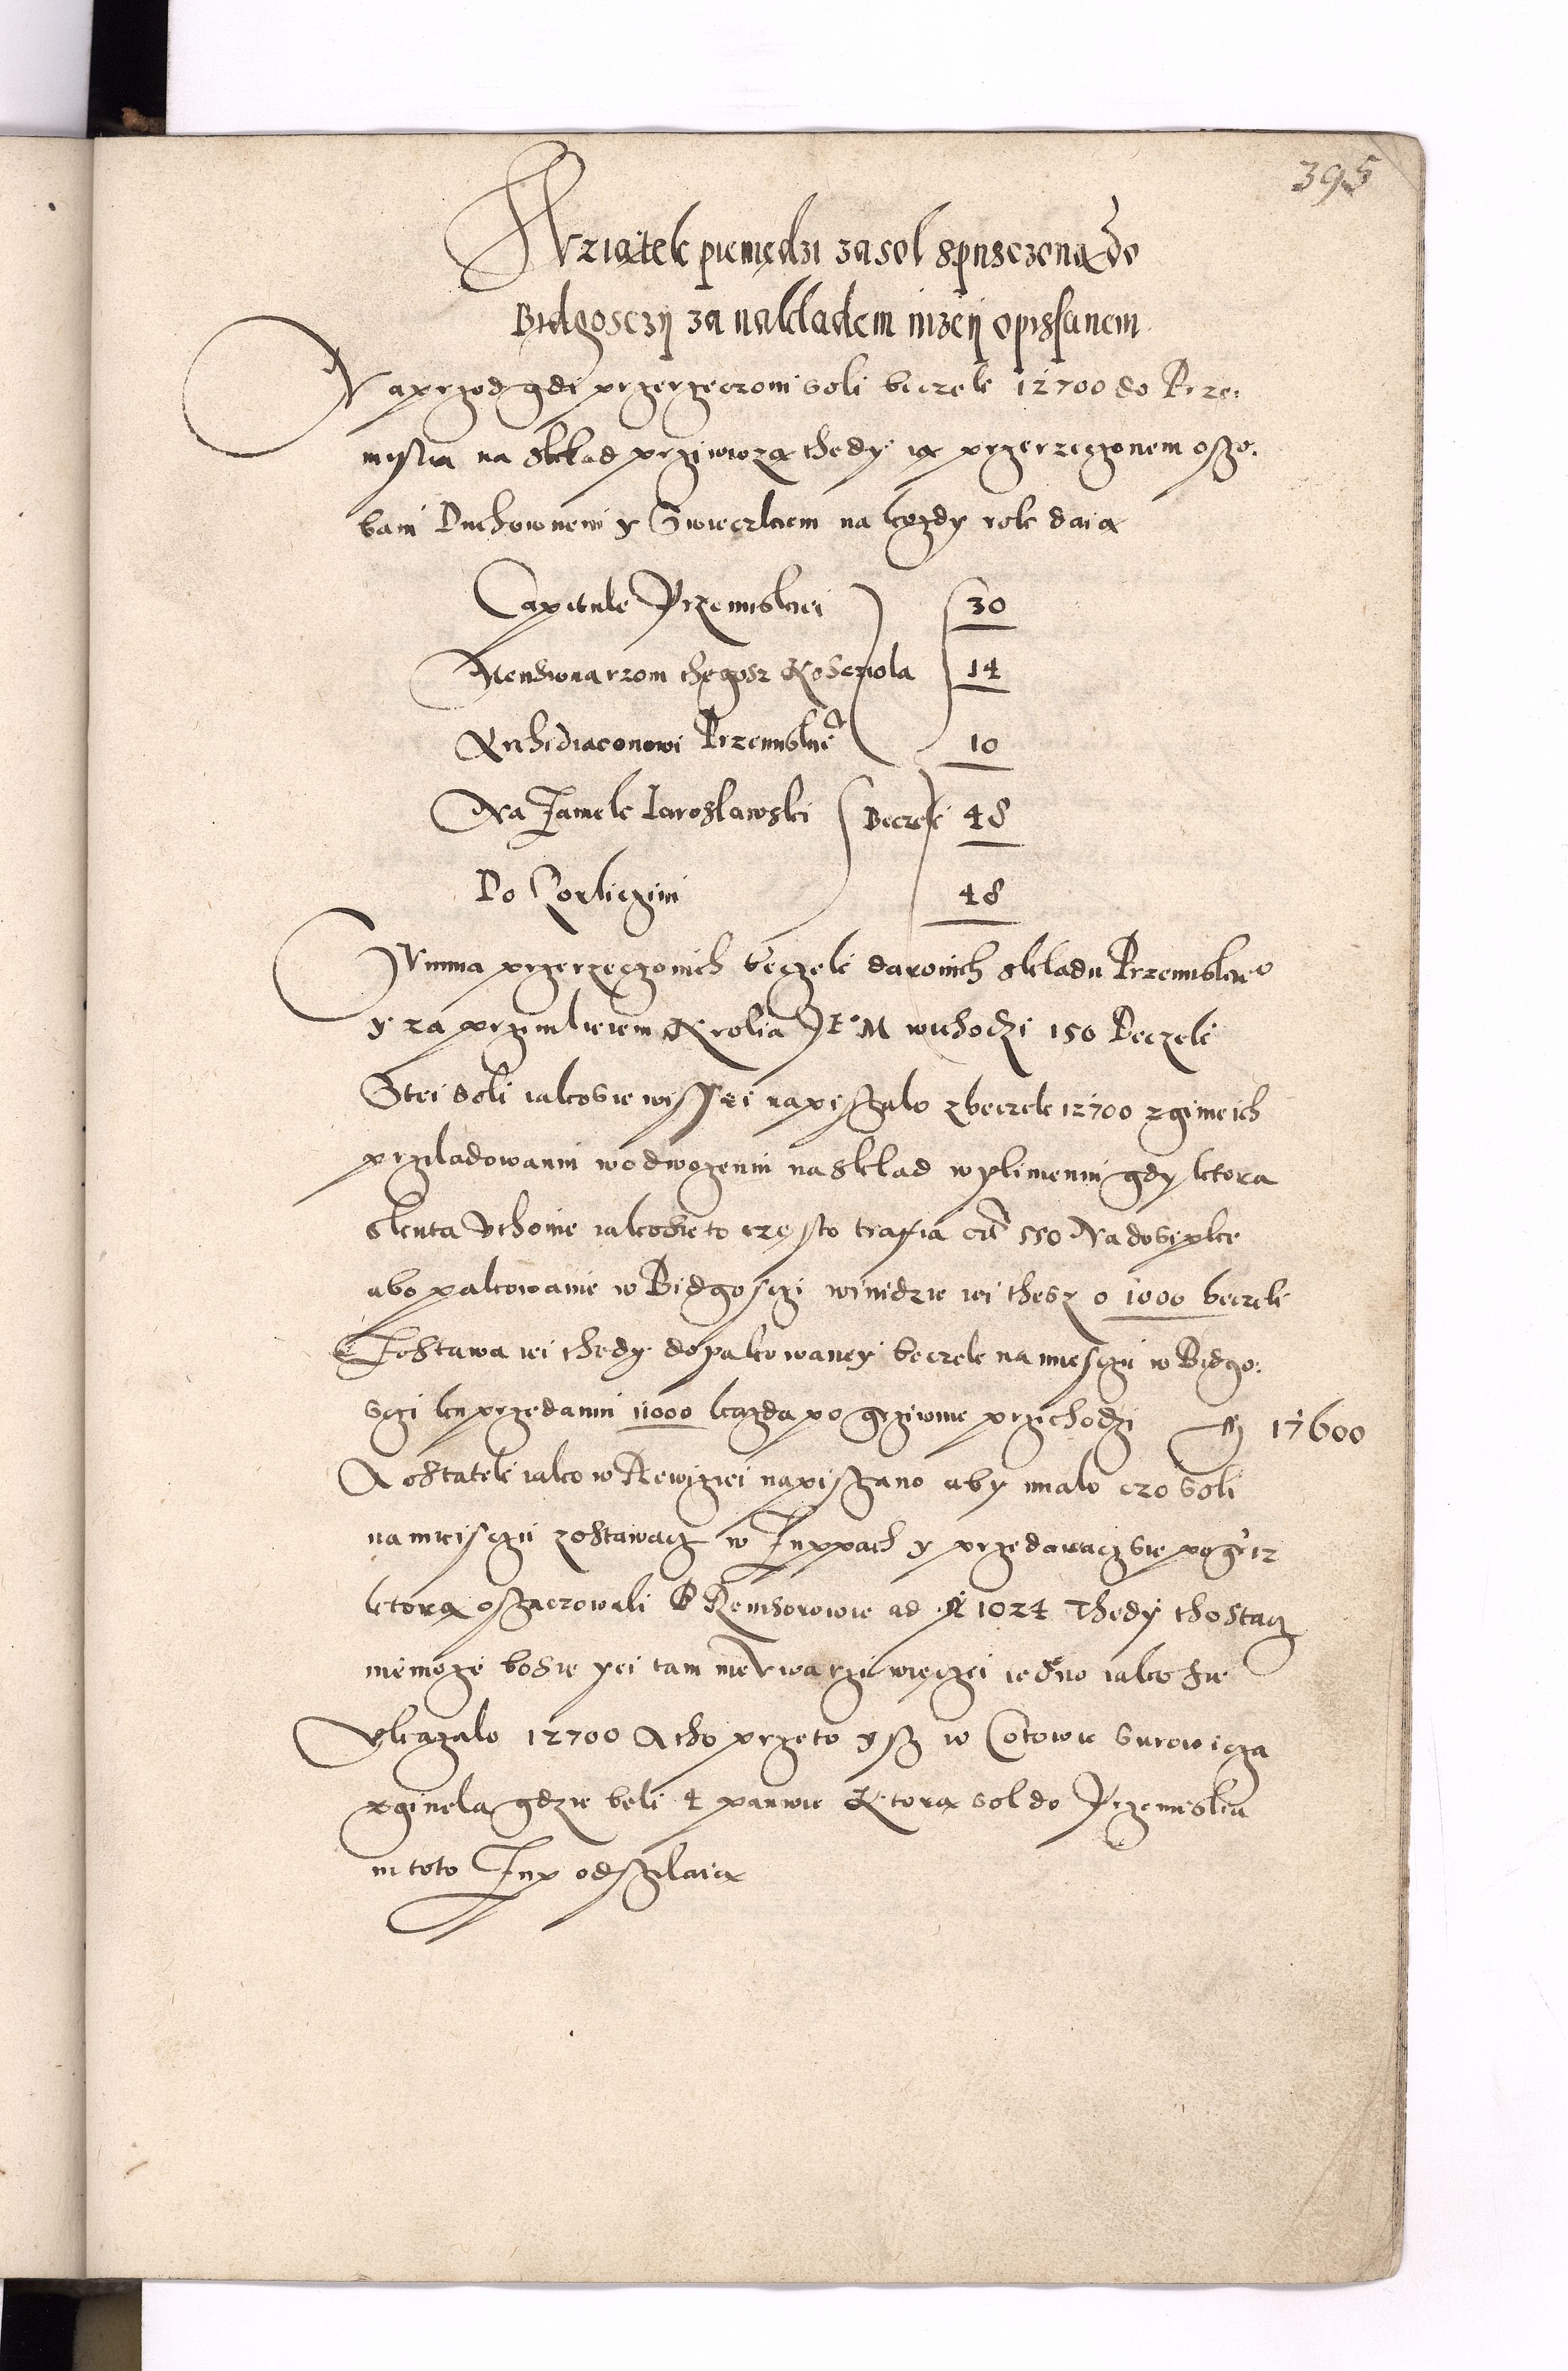 395
Wziątek pieniędzi za sol spusczoną do
Bidgosczÿ za nakładem niżeÿ opissanem
Naprzod gdi przerzeczoni soli beczek 12700 do Prze:
mysla na skład prziwiozą thedy ią przerzeczonem oszo:
bam Duchownem y Swieczkiem na kozdy rok daią
Capitule Przemiskiei 30
Mensionarzom thegosz Koscziola 14
Archidiaconowi Przemiskie° 10
Na Zamek Iaroslawski Beczek 48
Do Korlicznii 48
Summa przerzeczonich beczek daronich skladu Przemiskie°
y za przimliciem Krolia JE° M wichodzi 150 Beczek
S tei soli iako sie wissei napiszalo z beczek 12700 zginie ich
przi ladowaniu w odwozeniu na sklad w plinieniu gdy ktora
skuta vthonie iako sie to często trafia 550 Na dosipke
abo pakowanie w Bidgosczi winidzie iei thesz o 1000 beczek
Zostawa iei thedy dopakowaney beczek na miesczu w Bidgo:
sczi ku przedaniu 11000 kazda po grziwnie przichodzi fl 17600
A ostatek iako w Rewiziei napiszano aby mialo czo soli
na mieisczu zostawacz w Zuppach y przedawacz sie po gr 12
ktorą oszaczowali P Rewisorowie ad fl 1024 Thedy tho stacz
nie może bo sie yei tam nie vwarzi więczei iedno iako sie
vkazalo 12700 A tho przeto ysz w Cotowie surowicza
zginela gdzie beli 4 panwie Ktorą sol do Przemiskia
in toto Zup odszilaią